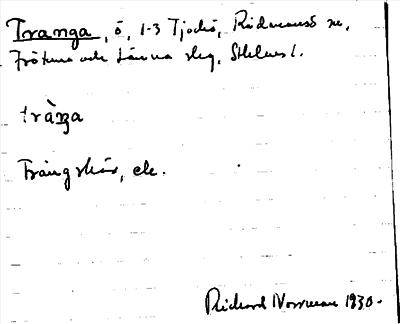 Tranga, ö, 1-3 Tjockö, Rådmansö sn,
Frötuna och Länna slg, Sthlms l.
tràŋa
Trångskär, etc.
Richard Norrman 1930.